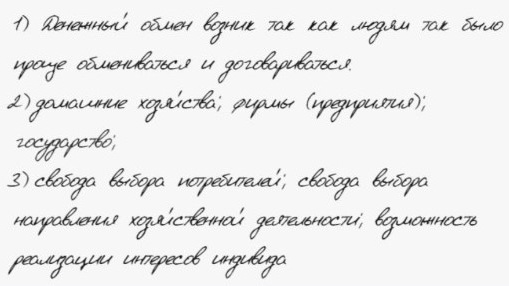 1) Денежный обмен возник так как людям так было
проще обмениваться и договариваться.
2) домашние хозяйства; фирмы (предприятия);
государство;
3) свобода выбора потребителей; свобода выбора
направления хозяйственной деятельности; возможность
реализации интересов индивида